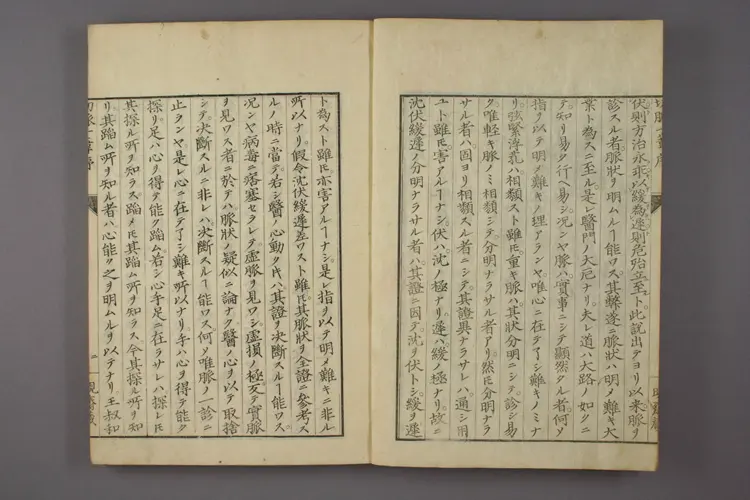 伏則方治永乖以緩為遲則危殆立至ト此説出テヨリ以来脈ヲ
診スル者脈状ヲ明ムルヿ能ワス其弊遂ニ脈状ハ明メ難キヲ大
業ト為スニ至ル是レ醫門ノ大厄ナリ夫レ道ハ大路ノ如クニ
テ知リ易ク行ヘ易シ况ンヤ脈ハ實事ニシテ顯然タル者何ソ
指リ以テ明メ難キノ理アランヤ唯心ニ在テ了シ難キノミナ
リ弦緊浮芤ハ相類スト雖モ重キ脈ハ其状分明ニシテ診シ易
ク唯輕キ脈ノミ相類シテ分明ナラサル者アリ然モ分明ナラ
サル者ハ固ヨリ相類スル者ニシテ其證異ナラサレハ通シ用
ユト雖モ害アルヿナシ伏ハ沈ノ極ナリ遲ハ緩ノ極ナリ故ニ
沈伏緩遲ノ分明ナラサル者ハ其證ニ因テ沈ヲ伏トシ緩ヲ遲
ト為スト雖モ亦害アルヿナシ是レ指ヲ以テ明メ難キニ非ル
所以ナリ假令沈伏緩遲差ワスト雖モ其脈状ヲ全證ニ參考ス
ルノ時ニ當テ若シ醫ノ心動ク𪜈ハ其證ヲ決断スルヿ能ワス
况ンヤ病毒ニ痞塞セラレテ虚脈ヲ見ワシ虚損ノ極反テ實脈
ヲ見ワス者ニ於テハ脈状ノ疑似ニ論ナク醫ノ心ヲ以テ取捨
シテ决断スルニ非レハ决断スルヿ能ワス何ソ唯脈ノ一診ニ
止ランヤ是レ心ニ在テ了シ難キ所以ナリ手ハ心ヲ得テ能ク
探リ足ハ心ヲ得テ能ク蹈ム若シ心手足ニ在ラサレハ探レモ
其探ル所ヲ知ラス蹈メモ其蹈ム所ヲ知ラス今其探ル所ヲ知
リ其蹈ム所ヲ知ル者ハ心能ク之ヲ明ムルヲ以テナリ王叔和